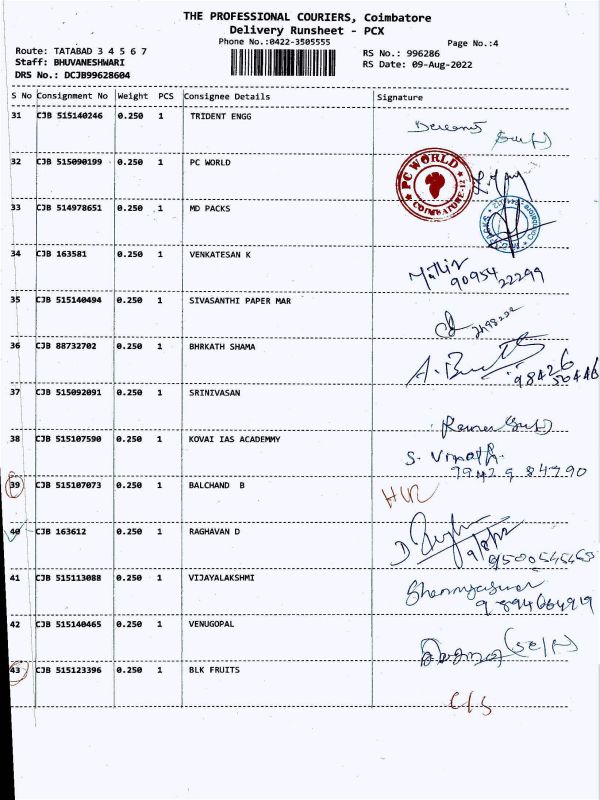 THE PROFESSIONAL COURIERS, Coimbatore
Delivery Runsheet - PCX
Phone No.:0422-3505555
Page No.:4
Route: TATABAD 3 4 5 6 7
Staff: BHUVANESHWARI
DRS No.: DCJB99628604
RS No.: 996286
RS Date: 09-Aug-2022
S No Consignment No Weight PCS Consignee Details Signature
31 CJB 515140246 0.250 1 TRIDENT ENGG
32 CJB 515090199 0.250 1 PC WORLD
PC WORLD
COIMBATORE-12
33 CJB 514978651 0.250 1 MD PACKS
34 CJB 163581 0.250 1 VENKATESAN K
90954
22299
35 CJB 515140494 0.250 1 SIVASANTHI PAPER MAR
36 CJB 88732702 0.250 1 BHRKATH SHAMA
98426
50446
37 CJB 515092091 0.250 1 SRINIVASAN
38 CJB 515107590 0.250 1 KOVAI IAS ACADEMMY
S. Vinoth.
39 CJB 515107073 0.250 1 BALCHAND B
40 CJB 163612 0.250 1 RAGHAVAN D
41 CJB 515113088 0.250 1 VIJAYALAKSHMI
42 CJB 515140465 0.250 1 VENUGOPAL
43 CJB 515123396 0.250 1 BLK FRUITS
C/S